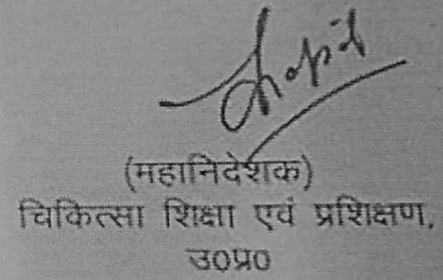 (महानिदेशक)
चिकित्सा शिक्षा एवं प्रशिक्षण,
उ0प्र0